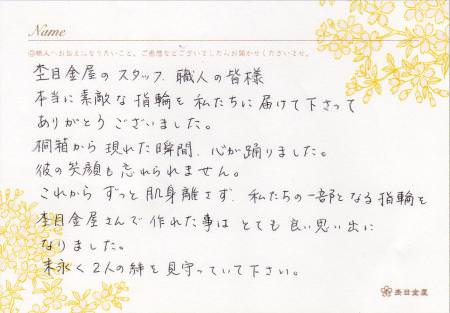 Name
◎職人へお伝えになりたいこと、ご感想などございましたらお聞かせくださいませ。
杢目金屋の スタッフ、職人の皆様
本当に素敵な指輪を私たちに届けて下さって
ありがとうございました。
桐箱から現れた瞬間、心が踊りました。
彼の笑顔も忘れられません。
これから ずっと肌身離さず、私たちの一部となる指輪を
杢目金屋さんで作れた事は とても良い思い出に
なりました。
末永く2人の絆を見守っていて下さい。
杢目金屋